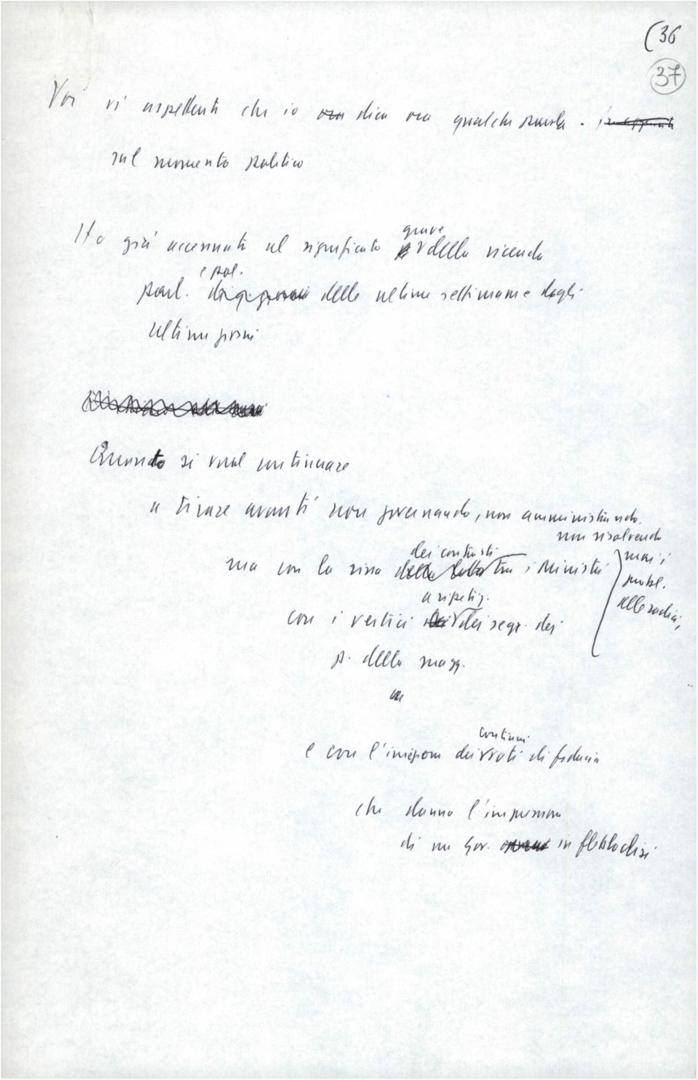 (36
37
Voi vi aspettate che io dica ora qualche parola.
sul momento politico
Ho già accennato al significato grave della vicenda
parl. e pol. delle ultime settimane e degli
ultimi giorni
Quando si vuol continuare
a tirare avanti non governando, non amministrando,
non risolvendo
mai i
probl.
alle radici,
ma con la rissa dei contrasti tra i Ministri
con i vertici a ripetiz. dei segr. dei
p. della magg.
e con l'iniezione dei continui voti di fiducia
che danno l'impressione
di un gov. in fleboclisi